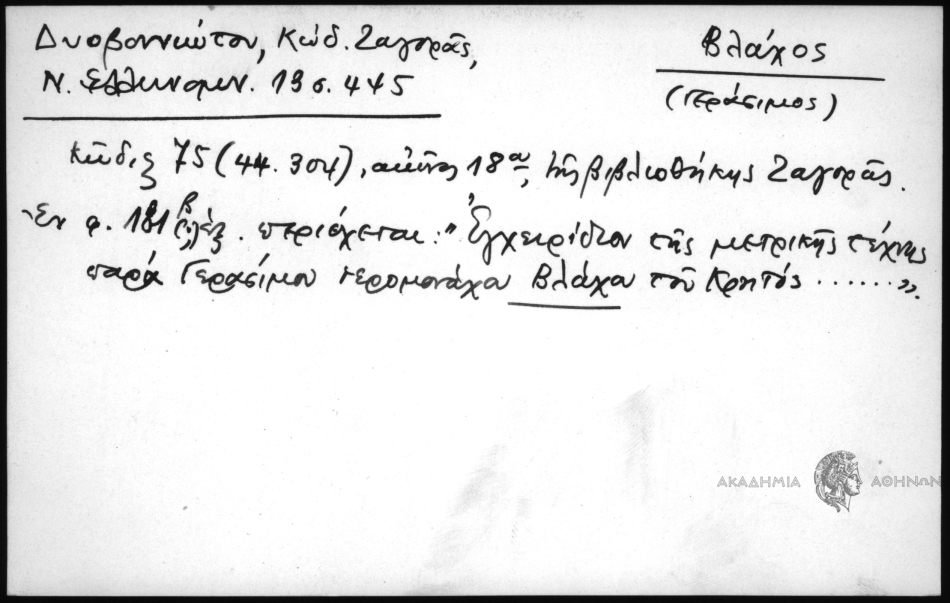 Δυοβουνιώτου, Κώδ. Ζαγορᾶς,
Ν. Ἑλληνομν. 13 σ. 445
Βλάχος
(Γεράσιμος)
Κῶδιξ 75 (44. 304), αἰῶνος 18ου, τῆς βιβλιοθήκης Ζαγορᾶς.
Ἐν φ. 181β περιέχεται: "Ἐγχειρίδιον τῆς μετρικῆς τέχνης
παρά Γερασίμου ἱερομονάχου Βλάχου τοῦ Κρητός ......».
ΑΚΑΔΗΜΙΑ ΑΘΗΝΩΝ